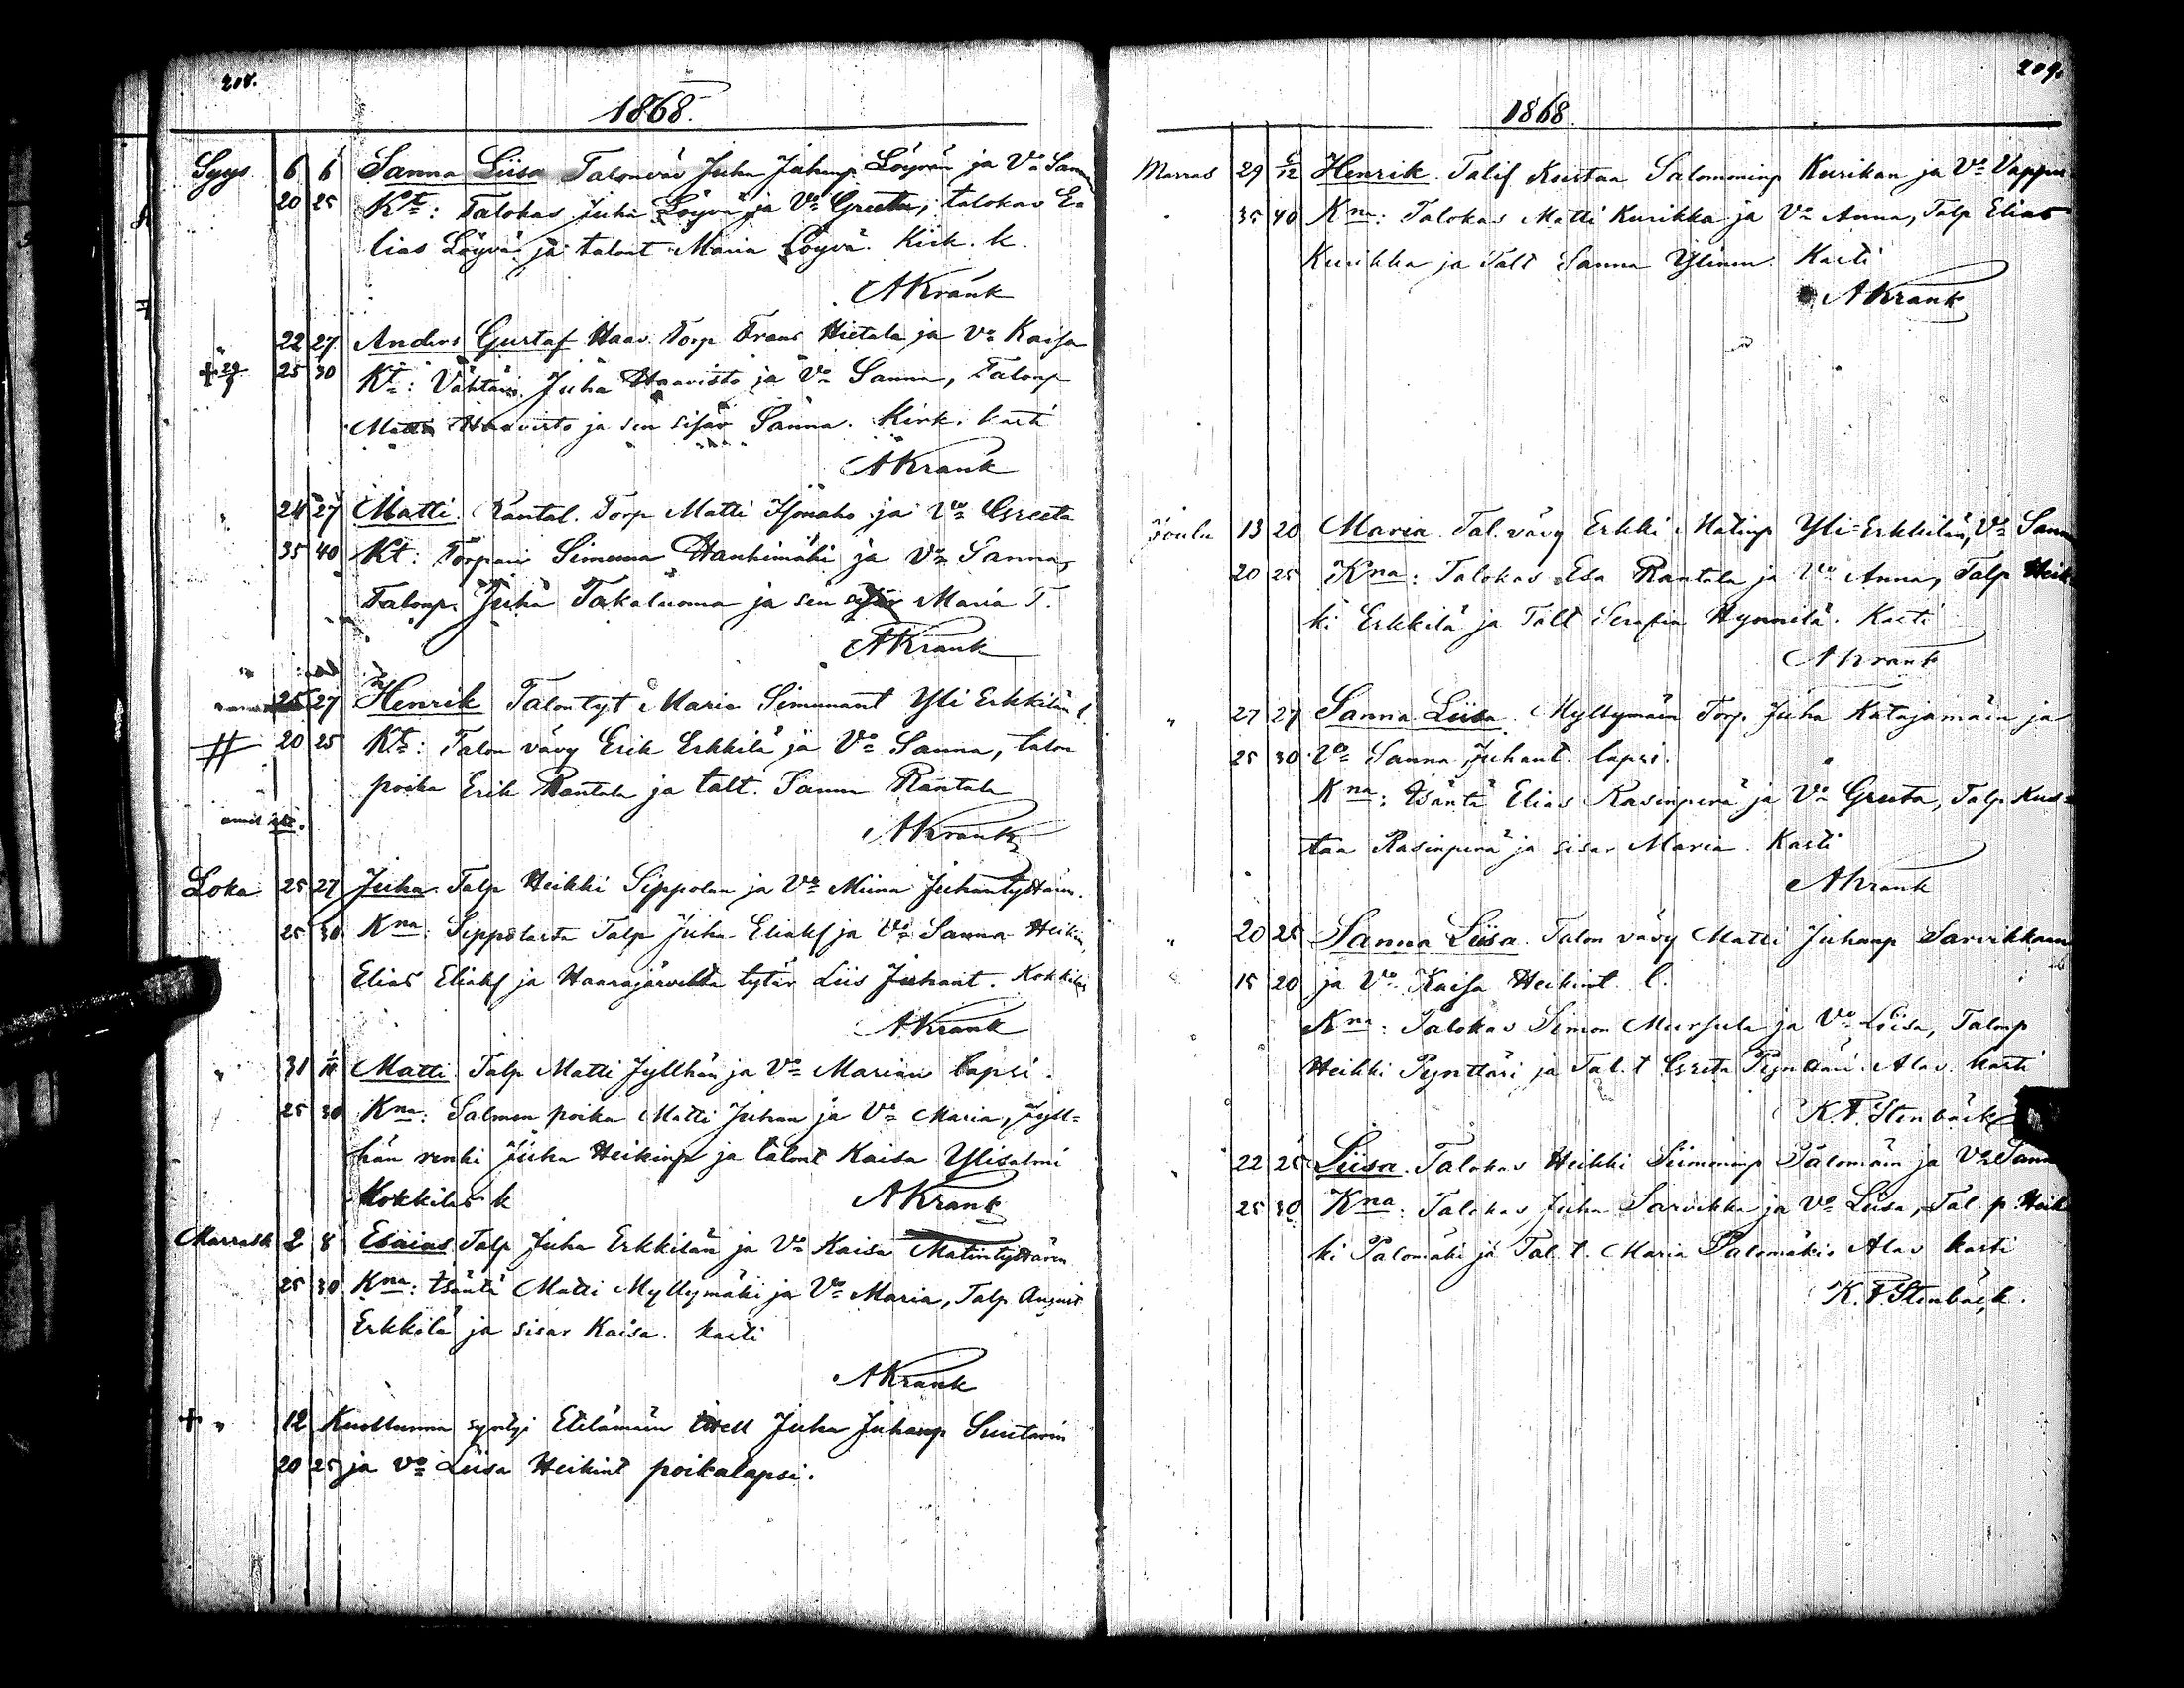 208.
1868.
Syys 6 6 Sanna Liisa Talonväv Juha Juhanp Löyvän ja Vo Sanna
20 25 Kt: Talokas Juha Löyvä ja Vo Greeta, talokas E=
lias Löyvä ja talont Maria Löyvä. Kirk. k.
AKrank
" 22 27 Anders Gustaf Haav. Torp Frans Hietala ja Vo Kaisa
+ 29/9 25 30 Kt: Juha Haavisto ja Vo Sanna, Talonp
Matti Haavisto ja sen sisar Sanna. Kirk. kasti
AKrank
" 24 27 Matti. Rantal. Torp Matti Isoniaho ja Vo Greeta
35 40 Kt: Torpari Simuna Hauhimäki ja Vo Sanna,
Talonp. Juha Takaluoma ja sen sisar Maria T.
AKrank
25 27 Henrik Talontyt Maria Simunant Yli Erkkilän l.
20 25 Kt: Talon vävy Erik Erkkilä ja Vo Sanna, talon
poika Erik Rantala ja talt. Sanna Rantala
AKrank
Loka 25 27 Juha. Talp Heikki Sippolan ja Vo Miina Juhantyttären.
25 30 Kna: Sippolasta Talp Juha Eliakf ja Vo Sanna Heikin
Elias Eliakf ja Haarajärveltä tytär Liis Juhant. Kokkilas
AKrank
" 31 1/11 Matti. Talp Matti Jyllhän ja Vo Marian lapsi.
25 30 Kna: Salmen poika Matti Juhan ja Vo Maria, Jyll=
hän renki Juha Heikinp ja talont Kaisa Ylisalmi
Kokkilas k AKrank
Marrask 2 8 Esaias. Talp Juha Erkkilän ja Vo Kaisa Matintyttären
25 30 Kna: Isäntä Matti Myllymäki ja Vo Maria, Talp August
Erkkilä ja sisar Kaisa. kasti
AKrank
+ " 12 Kuolluna syntyi Etelämäin Juha Juhanp Suutarin
20 25 ja vo Liisa Heikint poikalapsi.
209.
1868.
Marras 29 6/12 Henrik. Talif Kustaa Salomoninp Kurikan ja Vo Vappu
35 40 Kna: Talokas Matti Kurikka ja Vo Anna, Talp Elias
Kurikka ja Talt Sanna Ylinen. Kasti
AKrank
Joulu 13 20 Maria. Tal. vävy Erkki Matinp Yli=Erkkilän, Vo Sanna
20 25 Kna: Talokas Esa Rantala ja Vo Anna, Talp Heik
ki Erkkilä ja Talt Serafia Hynnilä. Kasti
AKrank
" 27 27 Sanna Liisa. Myllymäen Torp. Juha Katajamäen ja
25 30 Vo Sanna Juhant. lapsi.
Kna: Isäntä Elias Rasinperä ja Vo Greeta, Talp Kus=
taa Rasinperä ja sisar Maria. Kasti
AKrank
" 20 25 Sanna Liisa. Talon vävy Matti Juhanp Sarvikkaan
15 20 ja Vo Kaisa Heikint. l.
Kna: Talokas Simon Mursula ja Vo Liisa, Talonp
Heikki Pynttäri ja Tal. t Greta Pynttäri. Alav. kasti
K. F. Stenbäck
" 22 25 Liisa. Talokas Heikki Siimeninp Palomäin ja Vo Sanna
25 30 Kna: Talokas Juha Sarvikka ja Vo Liisa, Tal. p. Heik
ki Palomäki ja Tal. t. Maria Palomäki. Alav kasti
K. F. Stenbäck.